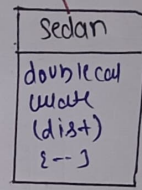 Sedan
double cal
culate
(dist)
{--}